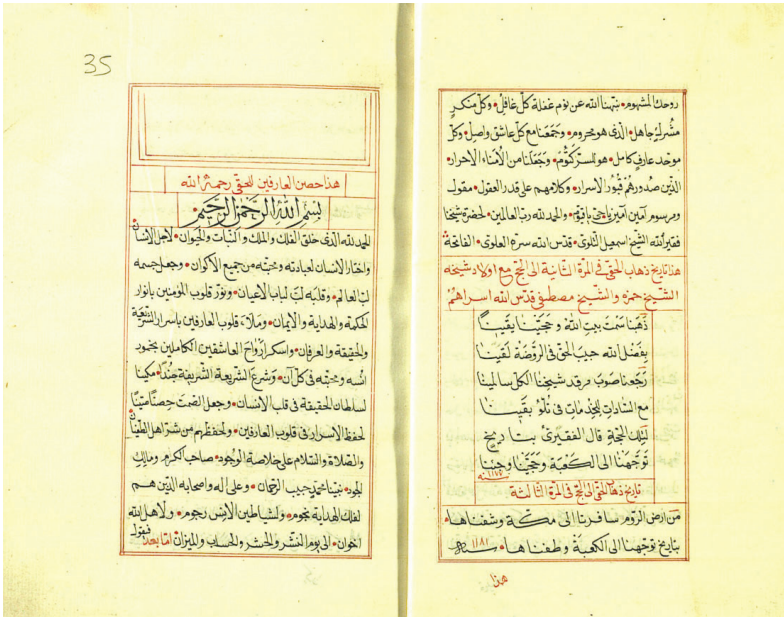 روحك المشهوم • نبّهنا الله عن نوم غفلة كلّ غافل • وكلّ منكر
مشرك جاهل • الذى هو محروم • وجمعنا مع كلّ عاشق واصل • وكلّ
موحّد عارف كامل • هو للسرّ كتوم • وجعلنا من الأمناء الأحرار •
الذين صدورهم قبور الاسرار • وكلامهم على قدر العقول • مقول
ومرسوم آمين آمين ياحىّ ياقيّوم • والحمد لله ربّ العالمين • لحضرة شيخنا
فقير الله الشيخ اسمعيل التلوى • قدّس الله سرّه العلوى • الفاتحة
هذا تاريخ ذهاب الحقى فى المرّة الثانية الى الحجّ مع اولاد شيخه
الشيخ حمزه والشيخ مصطفى قدّس الله اسراهم
ذهبنا سمت بيت الله وحجّينا يقينا
بفضل الله حبيب الحقّ فى الروضة لقينا
رجعنا صوب مرقد شيخنا الكلّ سالمينا
مع السّادات للخدمات فى تلّو بقينا
لتلك الحجّة قال الفقيرى بتاريخ
توجّهنا الى الكعبة وحجّينا وجينا
١١٧٥ سنه
تاريخ ذهاب الحقى الى الحجّ فى المرّة الثالثة
من ارض الرّوم سافرنا الى مكّة وشفناها •
بتاريخ توجّهنا الى الكعبة وطفناها • ١١٨١ سنه
هذا
35
هذا حصن العارفين للحقى رحمة الله
بسم الله الرّحمن الرّحيم •
الحمد لله الذى خلق الفلك والملك والنبات والحيوان • لاجل الانسان
واختار الانسان لعبادته ومحبّته • من جميع الأكوان • وجعل جسمه
لبّ العالم • وقلبه لبّ لباب الاعيان • ونوّر قلوب المؤمنين بانوار
الحكمة والهداية والايمان • وملاء قلوب العارفين باسرار الشريعة
والحقيقة والعرفان • واسكر ارواح العاشقين الكاملين بخمور
انسه ومحبّته فى كلّ آن • وشرع الشريعة الشريفة جندا • مكينا
لسلطان الحقيقة فى قلب الانسان • وجعل الصّمت حصنا متينا
لحفظ الاسرار فى قلوب العارفين • ولحفظهم من شرّ اهل الطغيان
والصّلاة والسّلام على خلاصة الوجود • صاحب الكرم ومالك
الجود • نبيّنا محمّد حبيب الرّحمان • وعلى آله واصحابه الذين هم
لفلك الهداية نجوم • ولشياطين الانس رجوم • ولاهل الله
اخوان • الى يوم النشر والحشر والحساب والميزان امّا بعد فيقول